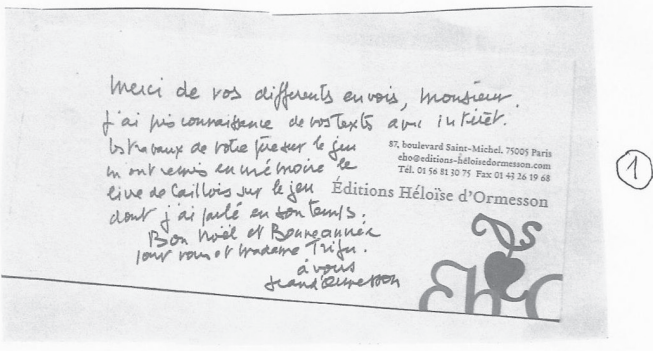 Merci de vos differents envois, Monsieur.
J'ai pris connaissance de vos textes avec intérêt.
Les travaux de votre père sur le jeu
m'ont remis en mémoire le
livre de Caillois sur le jeu
dont j'ai parlé en son temps.
Bon Noël et Bonne année
pour vous et Madame
à vous
Jean d'Ormesson
87, boulevard Saint-Michel. 75005 Paris
eho@editions-heloisedormesson.com
Tél. 01 56 81 30 75 Fax 01 43 26 19 68
Éditions Héloïse d'Ormesson
1